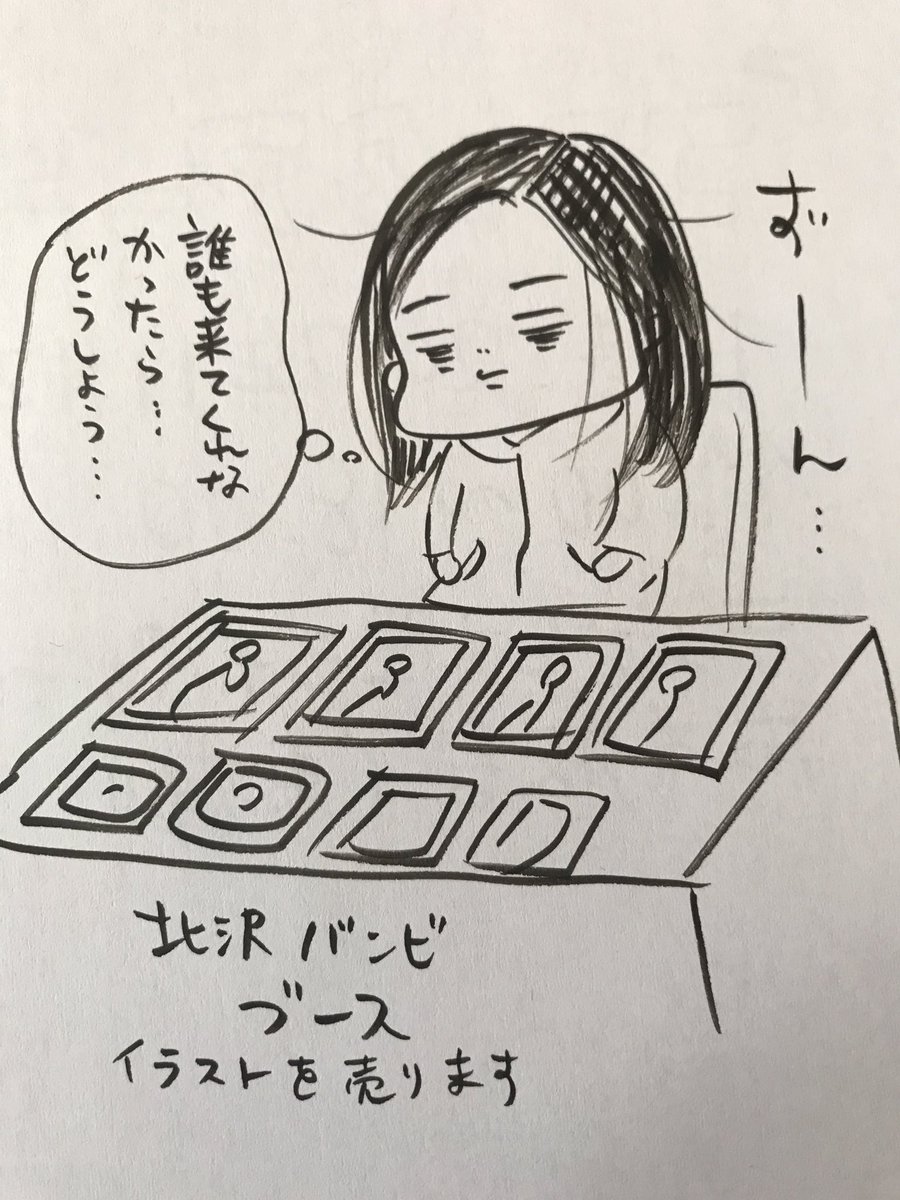 ずーん…
誰も来てくれな
かったら…
どうしよう…
北沢 バンビ
ブース
イラストを売ります